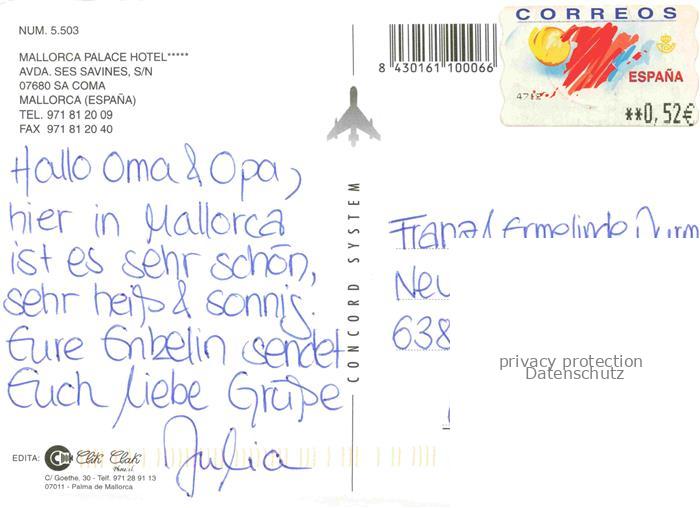 NUM. 5.503
MALLORCA PALACE HOTEL*****
AVDA. SES SAVINES, S/N
07680 SA COMA
MALLORCA (ESPAÑA)
TEL. 971 81 20 09
FAX 971 81 20 40
Hallo Oma & Opa,
hier in Mallorca
ist es sehr schön,
sehr heiß & sonnig.
Eure Enkelin sendet
Euch liebe Grüße
Julia
EDITA: Clik Clak
C/ Goethe, 30 - Telf. 971 28 91 13
07011 - Palma de Mallorca
CONCORD SYSTEM
8 430161 100066
CORREOS
ESPAÑA
**0,52€
Ermelinde
Neu
638
privacy protection
Datenschutz